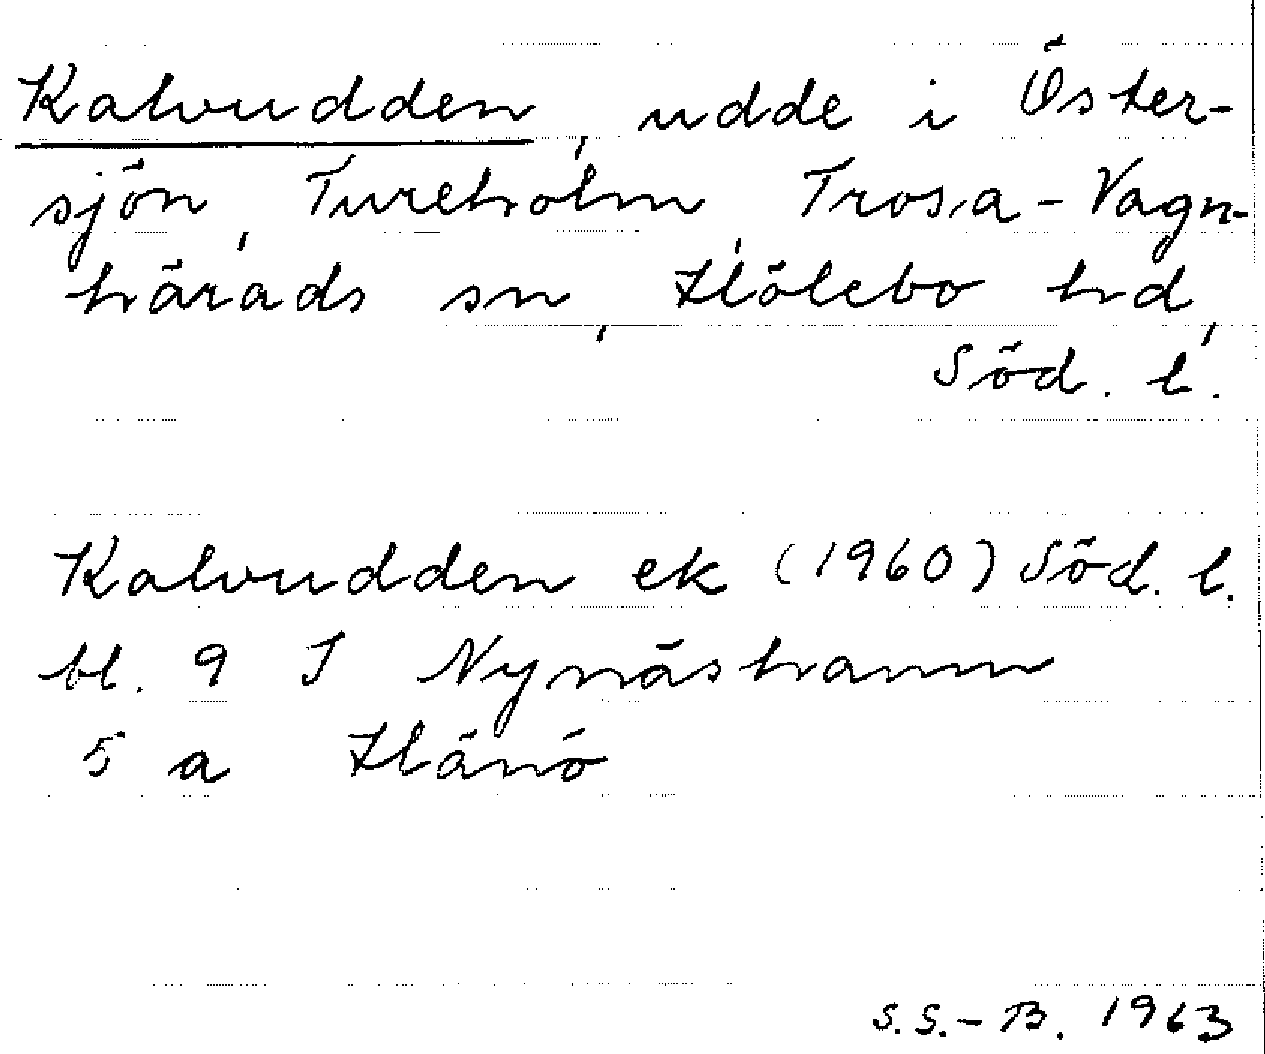 Kalvudden, udde i Öster-
sjön, Tureholm, Trosa-Vagn-
härads sn, Hölebo hd,
Söd. l.
Kalvudden ek (1960) Söd. l.
bl. 9 I Nynäshamn
5 a Hånö
S.S.-B. 1963